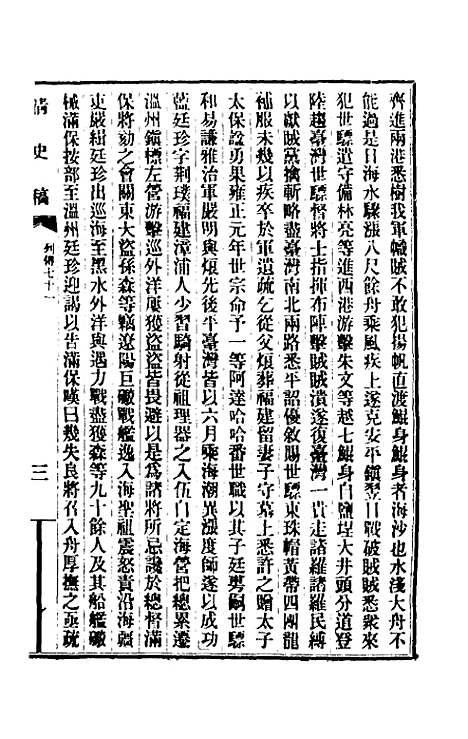 齊進兩港悉樹我軍幟賊不敢犯揚帆直渡鯤身鯤身者海沙也水淺大舟不
能過是日海水驟漲八尺餘舟乘風疾上遂克安平鎭翌日戰破賊賊悉衆來
犯世驃遣守備林亮等進西港游擊朱文等越七鯤身自鹽埕大井頭分道登
陸趨臺灣世驃督將士指揮布陣擊賊賊潰遂復臺灣一貴走諸羅諸羅民縛
以獻賊黨擒斬略盡臺灣南北兩路悉平詔優敘賜世驃東珠帽黃帶四團龍
補服未幾以疾卒於軍遺疏乞從父烺葬福建留妻子守墓上悉許之贈太子
太保諡勇果雍正元年世宗命予一等阿達哈哈番世職以其子廷旉嗣世驃
和易謙雅治軍嚴明與烺先後平臺灣皆以六月乘海潮異漲度師遂以成功
藍廷珍字荆璞福建漳浦人少習騎射從祖理器之入伍自定海營把總累遷
溫州鎭標左營游擊巡外洋屢獲盜盜皆畏避以是爲諸將所忌讒於總督滿
保將劾之會關東大盜孫森等竊遼陽巨礮戰艦逸入海聖祖震怒責沿海疆
吏嚴緝廷珍出巡海至黑水外洋與遇力戰盡獲森等九十餘人及其船艦礮
械滿保按部至溫州廷珍迎謁以告滿保嘆曰幾失良將召入舟厚撫之亟疏
清史稿
列傳七十一
三